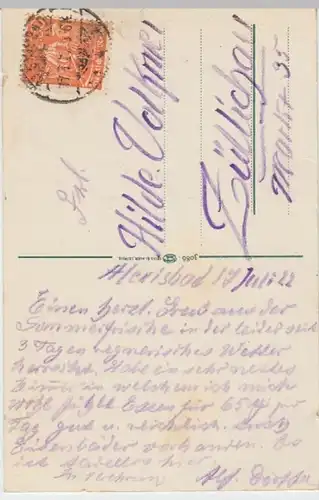 Frl.
Hilde Volkmer
Züllichau
Markt 35
3085
Alexisbad 17 Juli 22
Einen herzl. Gruß aus der
Sommerfrische in der leider seit
3 Tagen regnerisches Wetter
herrscht. Habe ein sehr nettes
Zimmer in welchem ich mich
wohl fühle Essen für 65 M pro
Tag gut u. reichlich. auch
vorhanden. Es
ist tadellos hier
Alf.